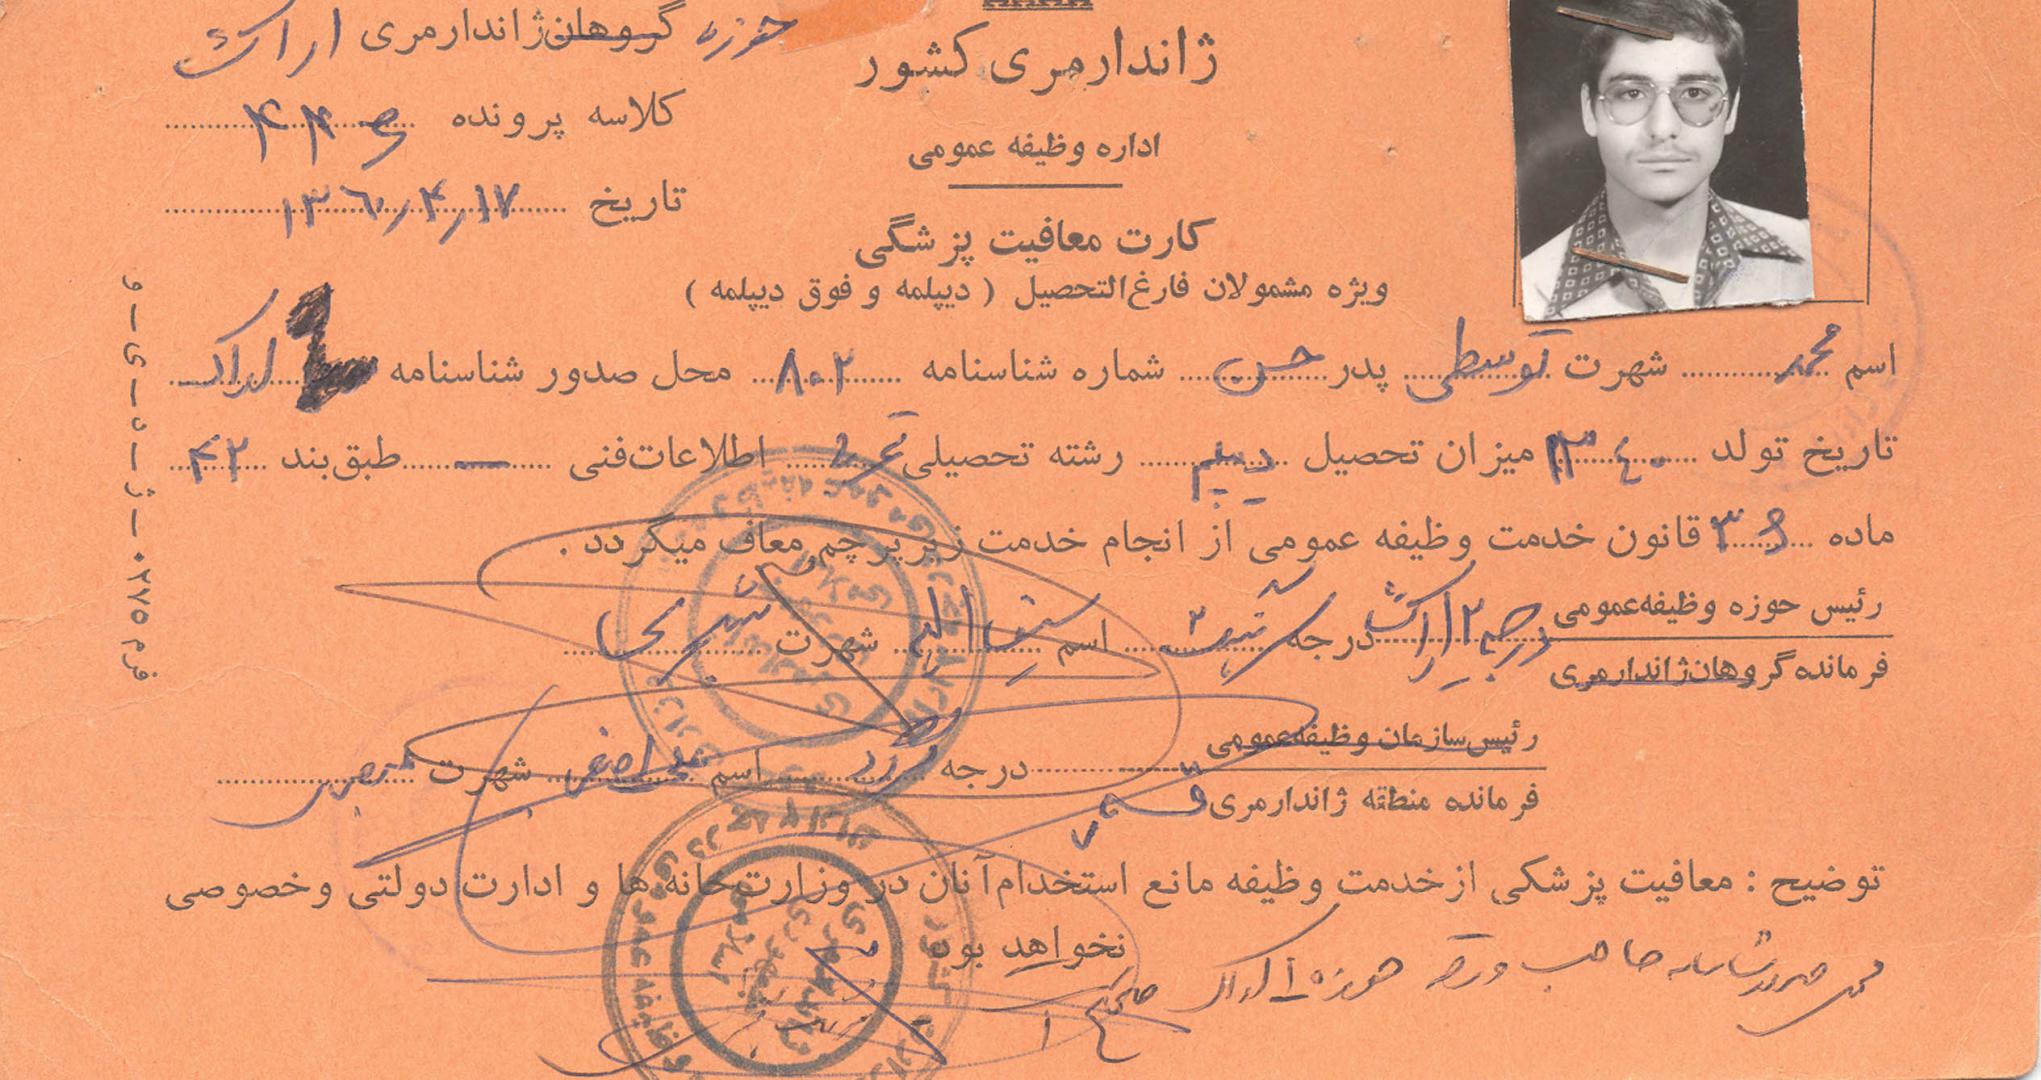 حوزه گروهان ژاندارمری اراک
کلاسه پرونده
تاریخ ۱۳۶۰٫۴٫۱۷
ژاندارمری کشور
اداره وظیفه عمومی
کارت معافیت پزشگی
ویژه مشمولان فارغ‌التحصیل ( دیپلمه و فوق دیپلمه )
اسم محمد شهرت توسطی پدر حسن شماره شناسنامه ۸۰۲ محل صدور شناسنامه اراک
تاریخ تولد ۱۳۴۰ میزان تحصیل دیپلم رشته تحصیلی اطلاعات فنی — طبق بند ۴۲
ماده ۳۶ قانون خدمت وظیفه عمومی از انجام خدمت زیر پرچم معاف میگردد .
رئیس حوزه وظیفه عمومی
درجه ۲ اراک درجه اسم شهرت
فرمانده گروهان ژاندارمری
رئیس سازمان وظیفه عمومی
درجه اسم شهرت
فرمانده منطقه ژاندارمری
توضیح : معافیت پزشکی از خدمت وظیفه مانع استخدام آنان در وزارتخانه ها و ادارت دولتی و خصوصی
نخواهد بود
محل صدور شناسنامه صاحب ورقه حوزه ۱ اراک صحیح است
فرم ۲۷۵۰ - ژ - د - ی - و